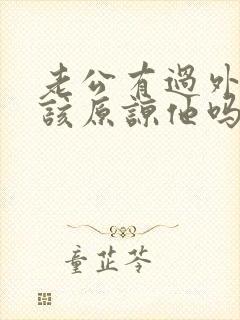 老公有過外
該原諒他吗
童芷苓